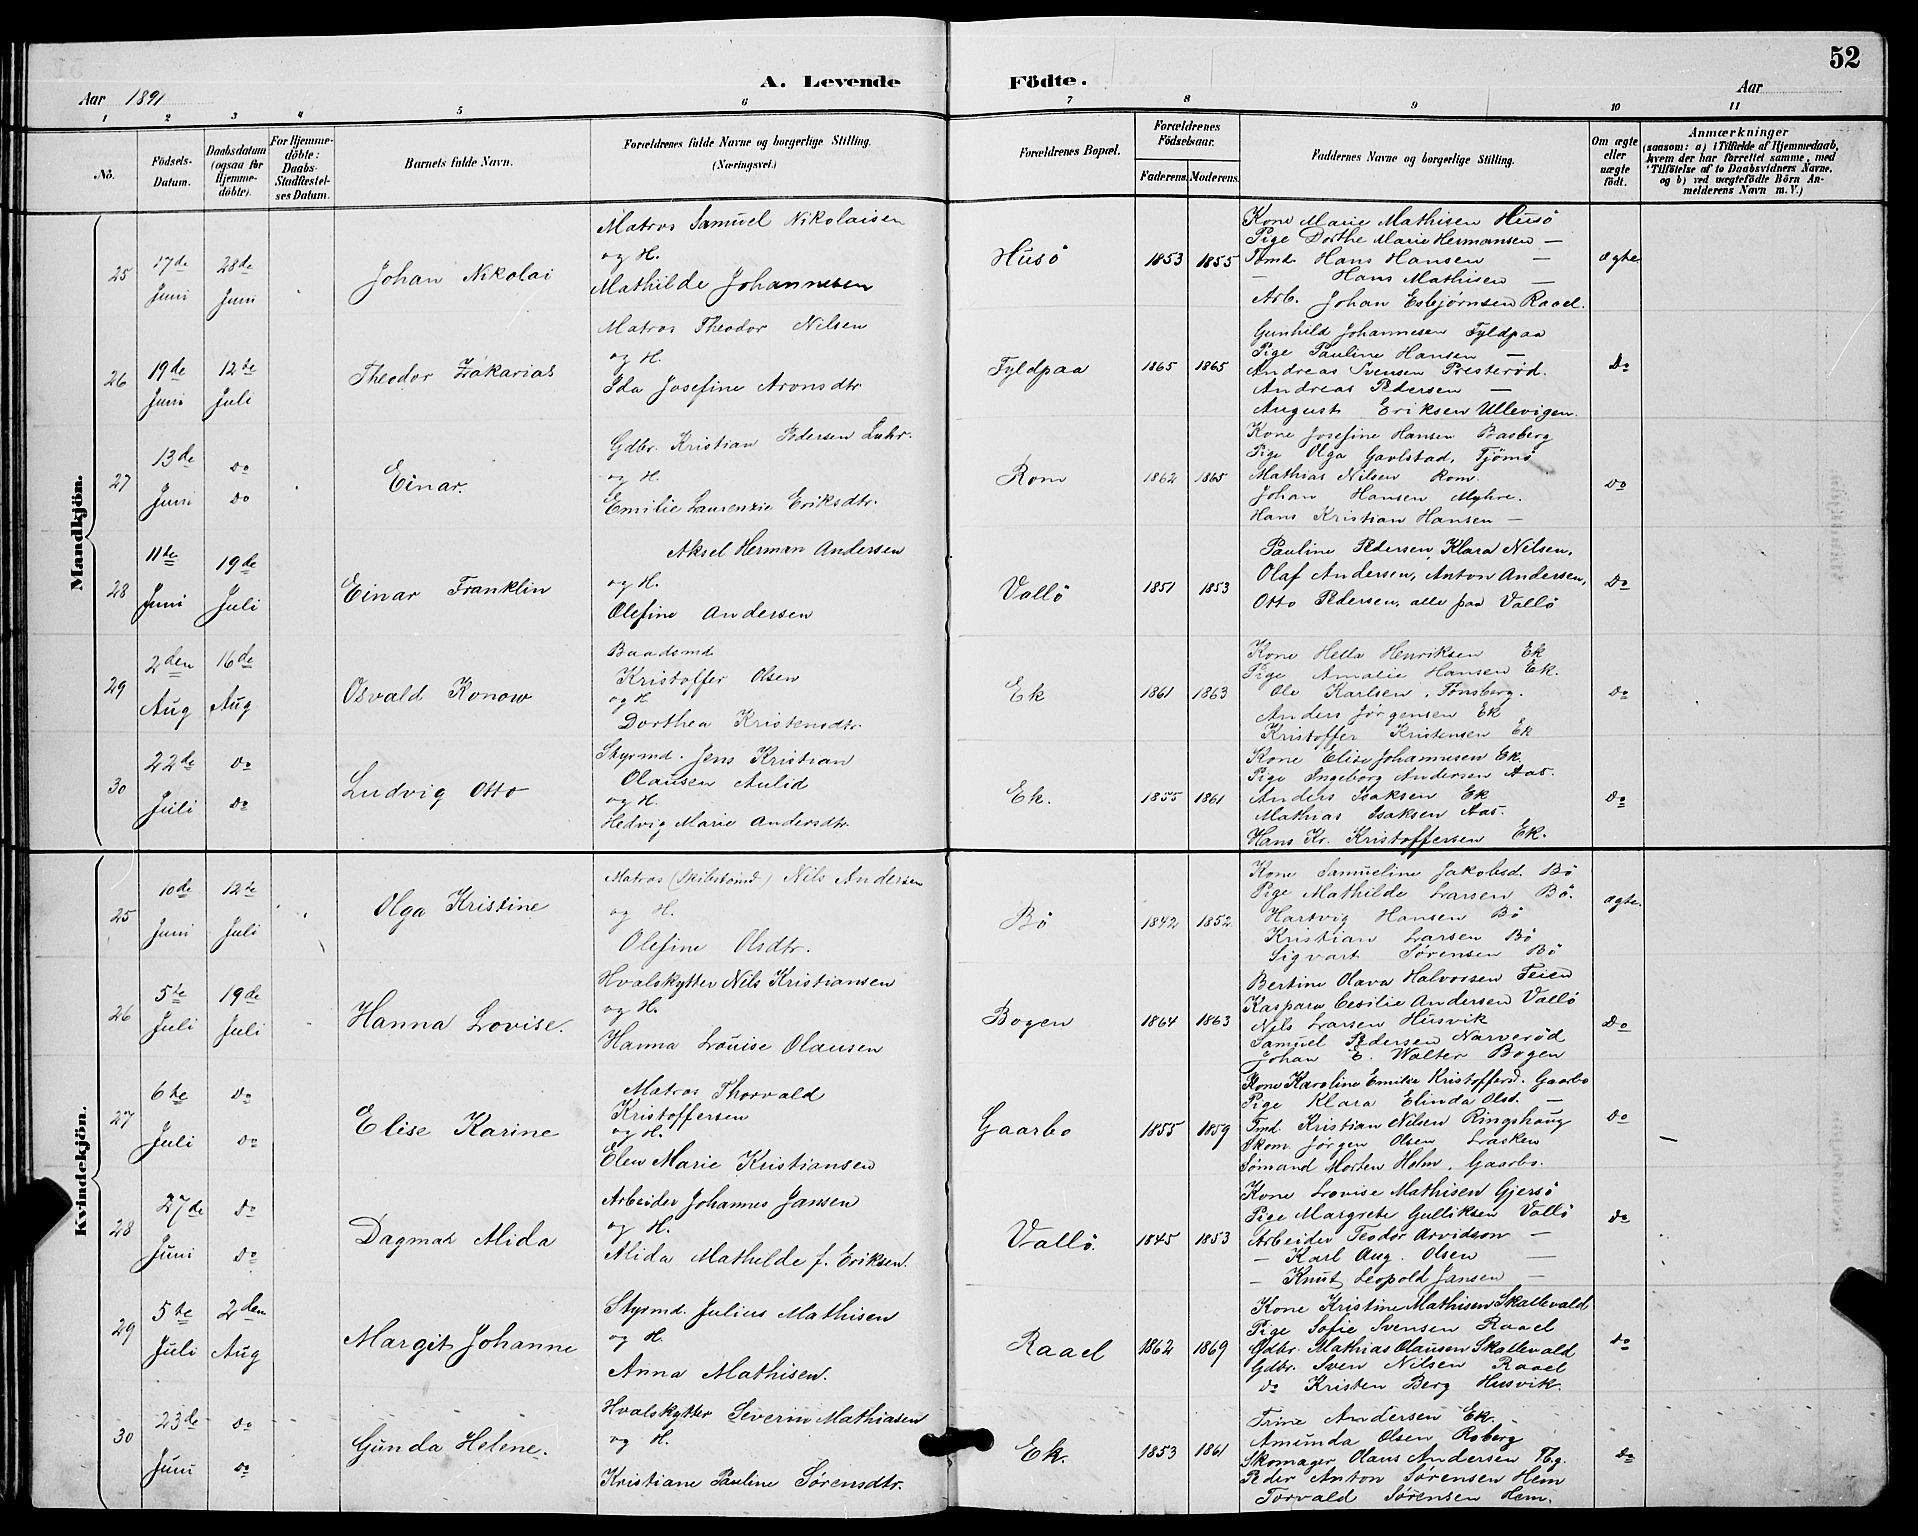 52
A. Levende Födte.
Aar 1891
Aar
1 2 3 4 5 6 7 8 9 10 11
No.
Födsels-Datum.
Daabsdatum (ogsaa for Hjemme-döbte).
For Hjemme-döbte: Daabs-Stadfæstel-ses Datum.
Barnets fulde Navn.
Forældrenes fulde Navne og borgerlige Stilling.
(Næringsvei.)
Forældrenes Bopæl.
Forældrenes Födselsaar.
Faderens. Moderens.
Faddernes Navne og borgerlige Stilling.
Om ægte eller uægte födt.
Anmærkninger
(saasom: a) i Tilfælde af Hjemmedaab, hvem der har forrettet samme, med Tilföielse af to Daabsvidners Navne, og b) ved uægtefödte Börn An-melderens Navn m. V.)
Mandkjön.
25 17de Juni 28de Juni
Johan Nikolai
Matros Samuel Nikolaisen
og H.
Mathilde Johannesen
Husö 1853 1855
Kone Marie Mathisen Husö
Pige Dorthe Marie Hermansen —
Tmd. Hans Hansen —
— Hans Mathisen —
Arb. Johan Esbjørnsen Raael.
ægte
26 19de Juni 12te Juli
Theodor Zakarias
Matros Theodor Nilsen
og H.
Ida Josefine Aronsdtr
Fyldpaa 1865 1865
Gunhild Johannesen Fyldpaa
Pige Pauline Hansen —
Andreas Svensen Presterød.
Andreas Pedersen —
August Eriksen Ullevigen.
Do
27 13de Juni do do
Einar.
Gdbr. Kristian Pedersen Luhr.
og H.
Emilie Laurenzie Eriksdtr.
Rom 1862 1865
Kone Josefine Hansen Basberg
Pige Olga Gavlstad, Tjømø
Mathias Nilsen Rom.
Johan Hansen Myhre.
Hans Kristian Hansen —
do
28 11te Juni 19de Juli
Einar Franklin
Aksel Herman Andersen
og H.
Olefine Andersen
Vallö 1851 1853
Pauline Pedersen, Klara Nilsen,
Olaf Andersen, Anton Andersen,
Otto Pedersen, alle paa Vallö
Do
29 2den Aug 16de Aug
Osvald Konow
Baadsmd
Kristoffer Olsen
og H
Dorthea Kristensdtr.
Ek 1861 1863
Kone Hella Henriksen Ek
Pige Amalie Hansen Ek.
Ole Karlsen, Tønsberg.
Anders Jørgensen Ek
Kristoffer Kristensen Ek
do
30 22de Juli do do
Ludvig Otto
Styrmd. Jens Kristian
Olausen Aulid
og H.
Hedvig Marie Andersdtr.
Ek. 1855 1861
Kone Elise Johannesen Ek
Pige Ingeborg Andersen Aas.
Anders Isaksen Ek
Mathias Isaksen Aas.
Hans Kr. Kristoffersen Ek.
do
Kvindekjön.
25 10de Juni 12te Juli
Olga Kristine
Matros (Skibstømd) Nils Andersen
og H.
Olefine Olsdtr.
Bö 1842 1852
Kone Samueline Jakobsd. Bö
Pige Mathilde Larsen Bö.
Hartvig Hansen Bö
Kristian Larsen Bö
Sigvart Sørensen Bö
ægte.
26 5te Juli 19de Juli
Hanna Lovise.
Hvalskytter Nils Kristiansen
og H.
Hanna Louise Olausen
Bogen 1864 1863
Bertine Olava Halvorsen Teien
Kaspara Cesilie Andersen Vallö
Nils Larsen Husvik
Samuel Pedersen Narverød
Johan E. Walter Bogen
Do
27 6te Juli do do
Elise Karine
Matros Thorvald
Kristoffersen
og H.
Elen Marie Kristiansen
Gaarbo 1855 1859
Kone Karoline Emilie Kristoffersd. Gaarbo
Pige Klara Elinda Olsd. —
Tmd. Kristian Nilsen Ringshaug
Skom. Jørgen Olsen Lasken
Sømand Morten Holm, Gaarbo.
Do
28 27de Juni do do
Dagmar Alida
Arbeider Johannes Jansen
og H.
Alida Mathilde f. Eriksen.
Vallö. 1845 1853
Kone Lovise Mathisen Gjersö
Pige Margrete Gulliksen Vallö
Arbeider Teodor Arvidson —
— Karl Aug. Olsen —
— Knut Leopold Jansen —
do
29 5te Juli 2den Aug
Margit Johanne
Styrmd. Julius Mathisen
og H.
Anna Mathisen.
Raael 1862 1869
Kone Kristine Mathisen Skallevald
Pige Sofie Svensen Raael
Gdbr. Mathias Olausen Skallevald
Gdbr. Sven Nilsen Raael
do Kristen Berg Husvik.
do
30 23de Juni do do
Gunda Helene.
Hvalskytter Severin Mathiasen
og H.
Kristiane Pauline Sørensdtr.
Ek. 1853 1861
Trine Andersen Ek.
Amunda Olsen Roberg
Skomager Olaus Andersen Tbg.
Peder Anton Sørensen Hem
Torvald Sørensen Hem.
do